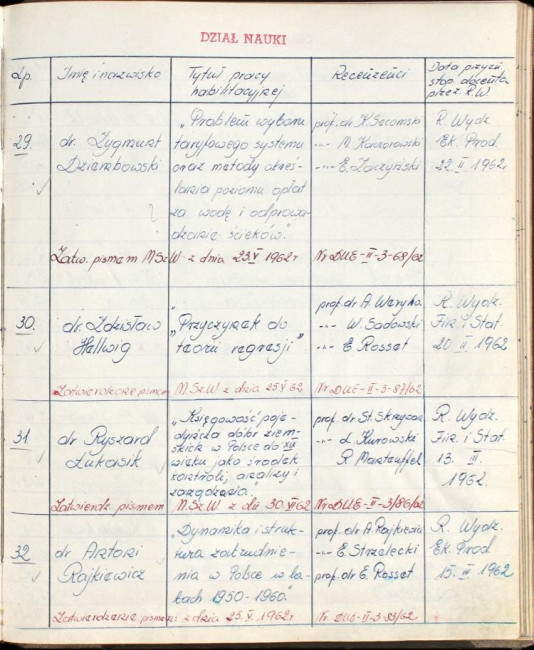 DZIAŁ NAUKI
Lp. Imię i nazwisko Tytuł pracy habilitacyjnej Recenzenci Data przyzn. stop. docenta przez R.W.
29. dr. Zygmunt „Problem wyboru prof. dr K. Secomski R. Wydz.
Dzierzbowski taryfowego systemu -"- Ek. Prod
oraz metody okreś- -"- E. Zaczyński 22. II 1962
lania poziomu opłat
za wodę i odprowa-
dzanie ścieków".
Zatw. pismem M.Sz.W. z dnia 23.V 1962 r Nr DUE-II-3-68/62
30. dr. Zdzisław „Przyczynek do prof. dr A. Wakar R. Wydz.
Hellwig teorii regresji" -"- W. Sadowski Fin. i Stat.
-"- E. Rosset 20. II. 1962
Zatwierdzone pismem M.Sz.W z dnia 25.V.62 Nr. DUE-II-3-87/62
31 dr Ryszard „Księgowość poje- prof. dr St. Skrzywan R. Wydz.
Łukasik dyncza dóbr ziem- -"- Fin. i Stat.
skich w Polsce do XIX -"- 13. III.
wieku jako środek 1962.
kontroli, analizy i
zarządzania".
Zatwierdz. pismem M.Sz.W z dn. 30.VI 62 Nr. DUE-II-3/86/62
32 dr Antoni „Dynamika i struk- prof. dr A. Rajkiewicz R. Wydz.
Rajkiewicz tura zatrudnie- -"- E. Strzelecki Ek. Prod
nia w Polsce w la- prof. dr E. Rosset 15. III 1962
tach 1950-1960."
Zatwierdzenie pismem z dnia 25.V.1962 r Nr. DUE-II-3-83/62